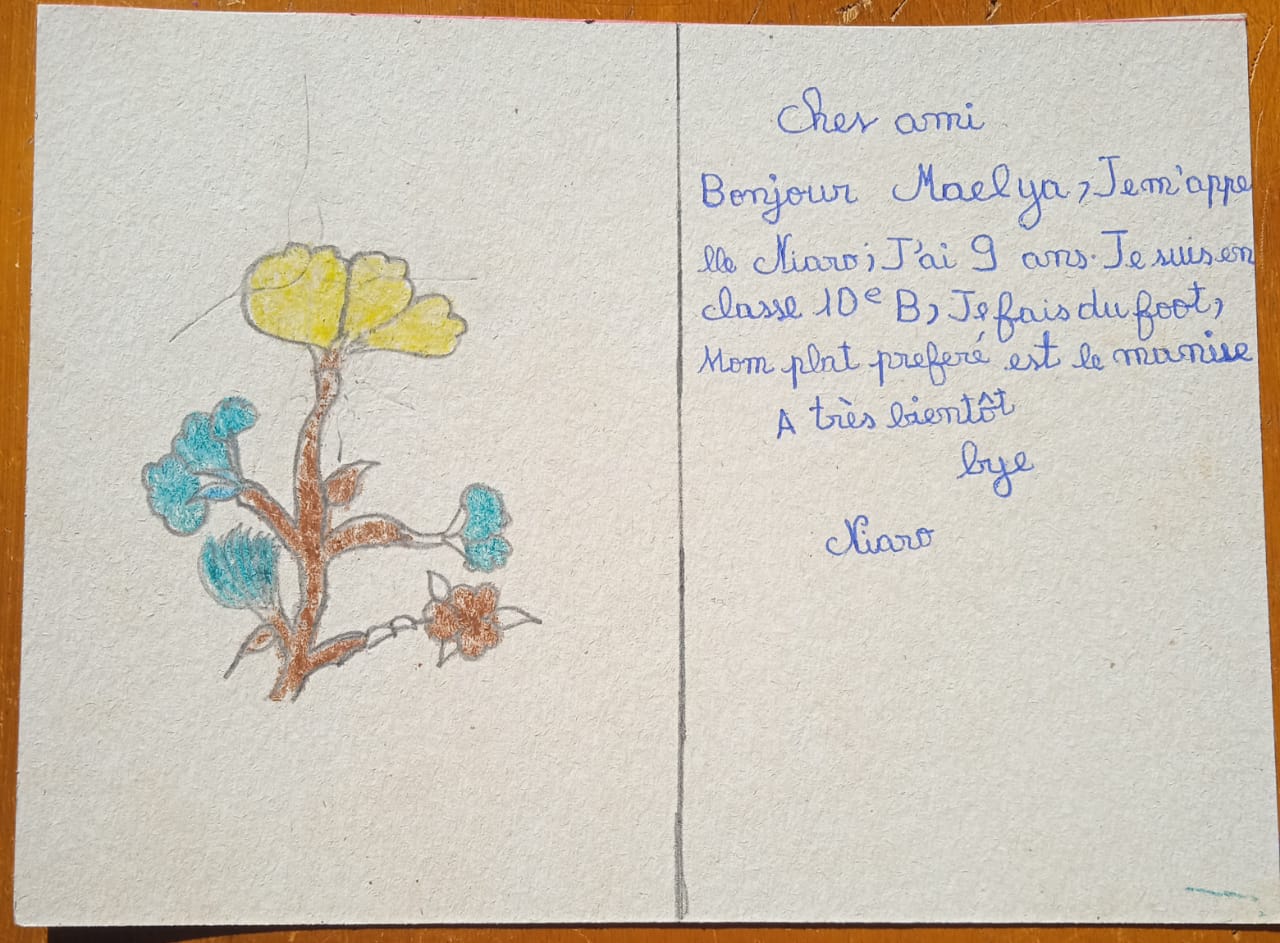 Cher ami
Bonjour Maelya, Je m'appe
lle Niaro; J'ai 9 ans. Je suis en
classe 10e B, Je fais du foot,
Mom plat preferé est le
A très bientôt
bye
Niaro